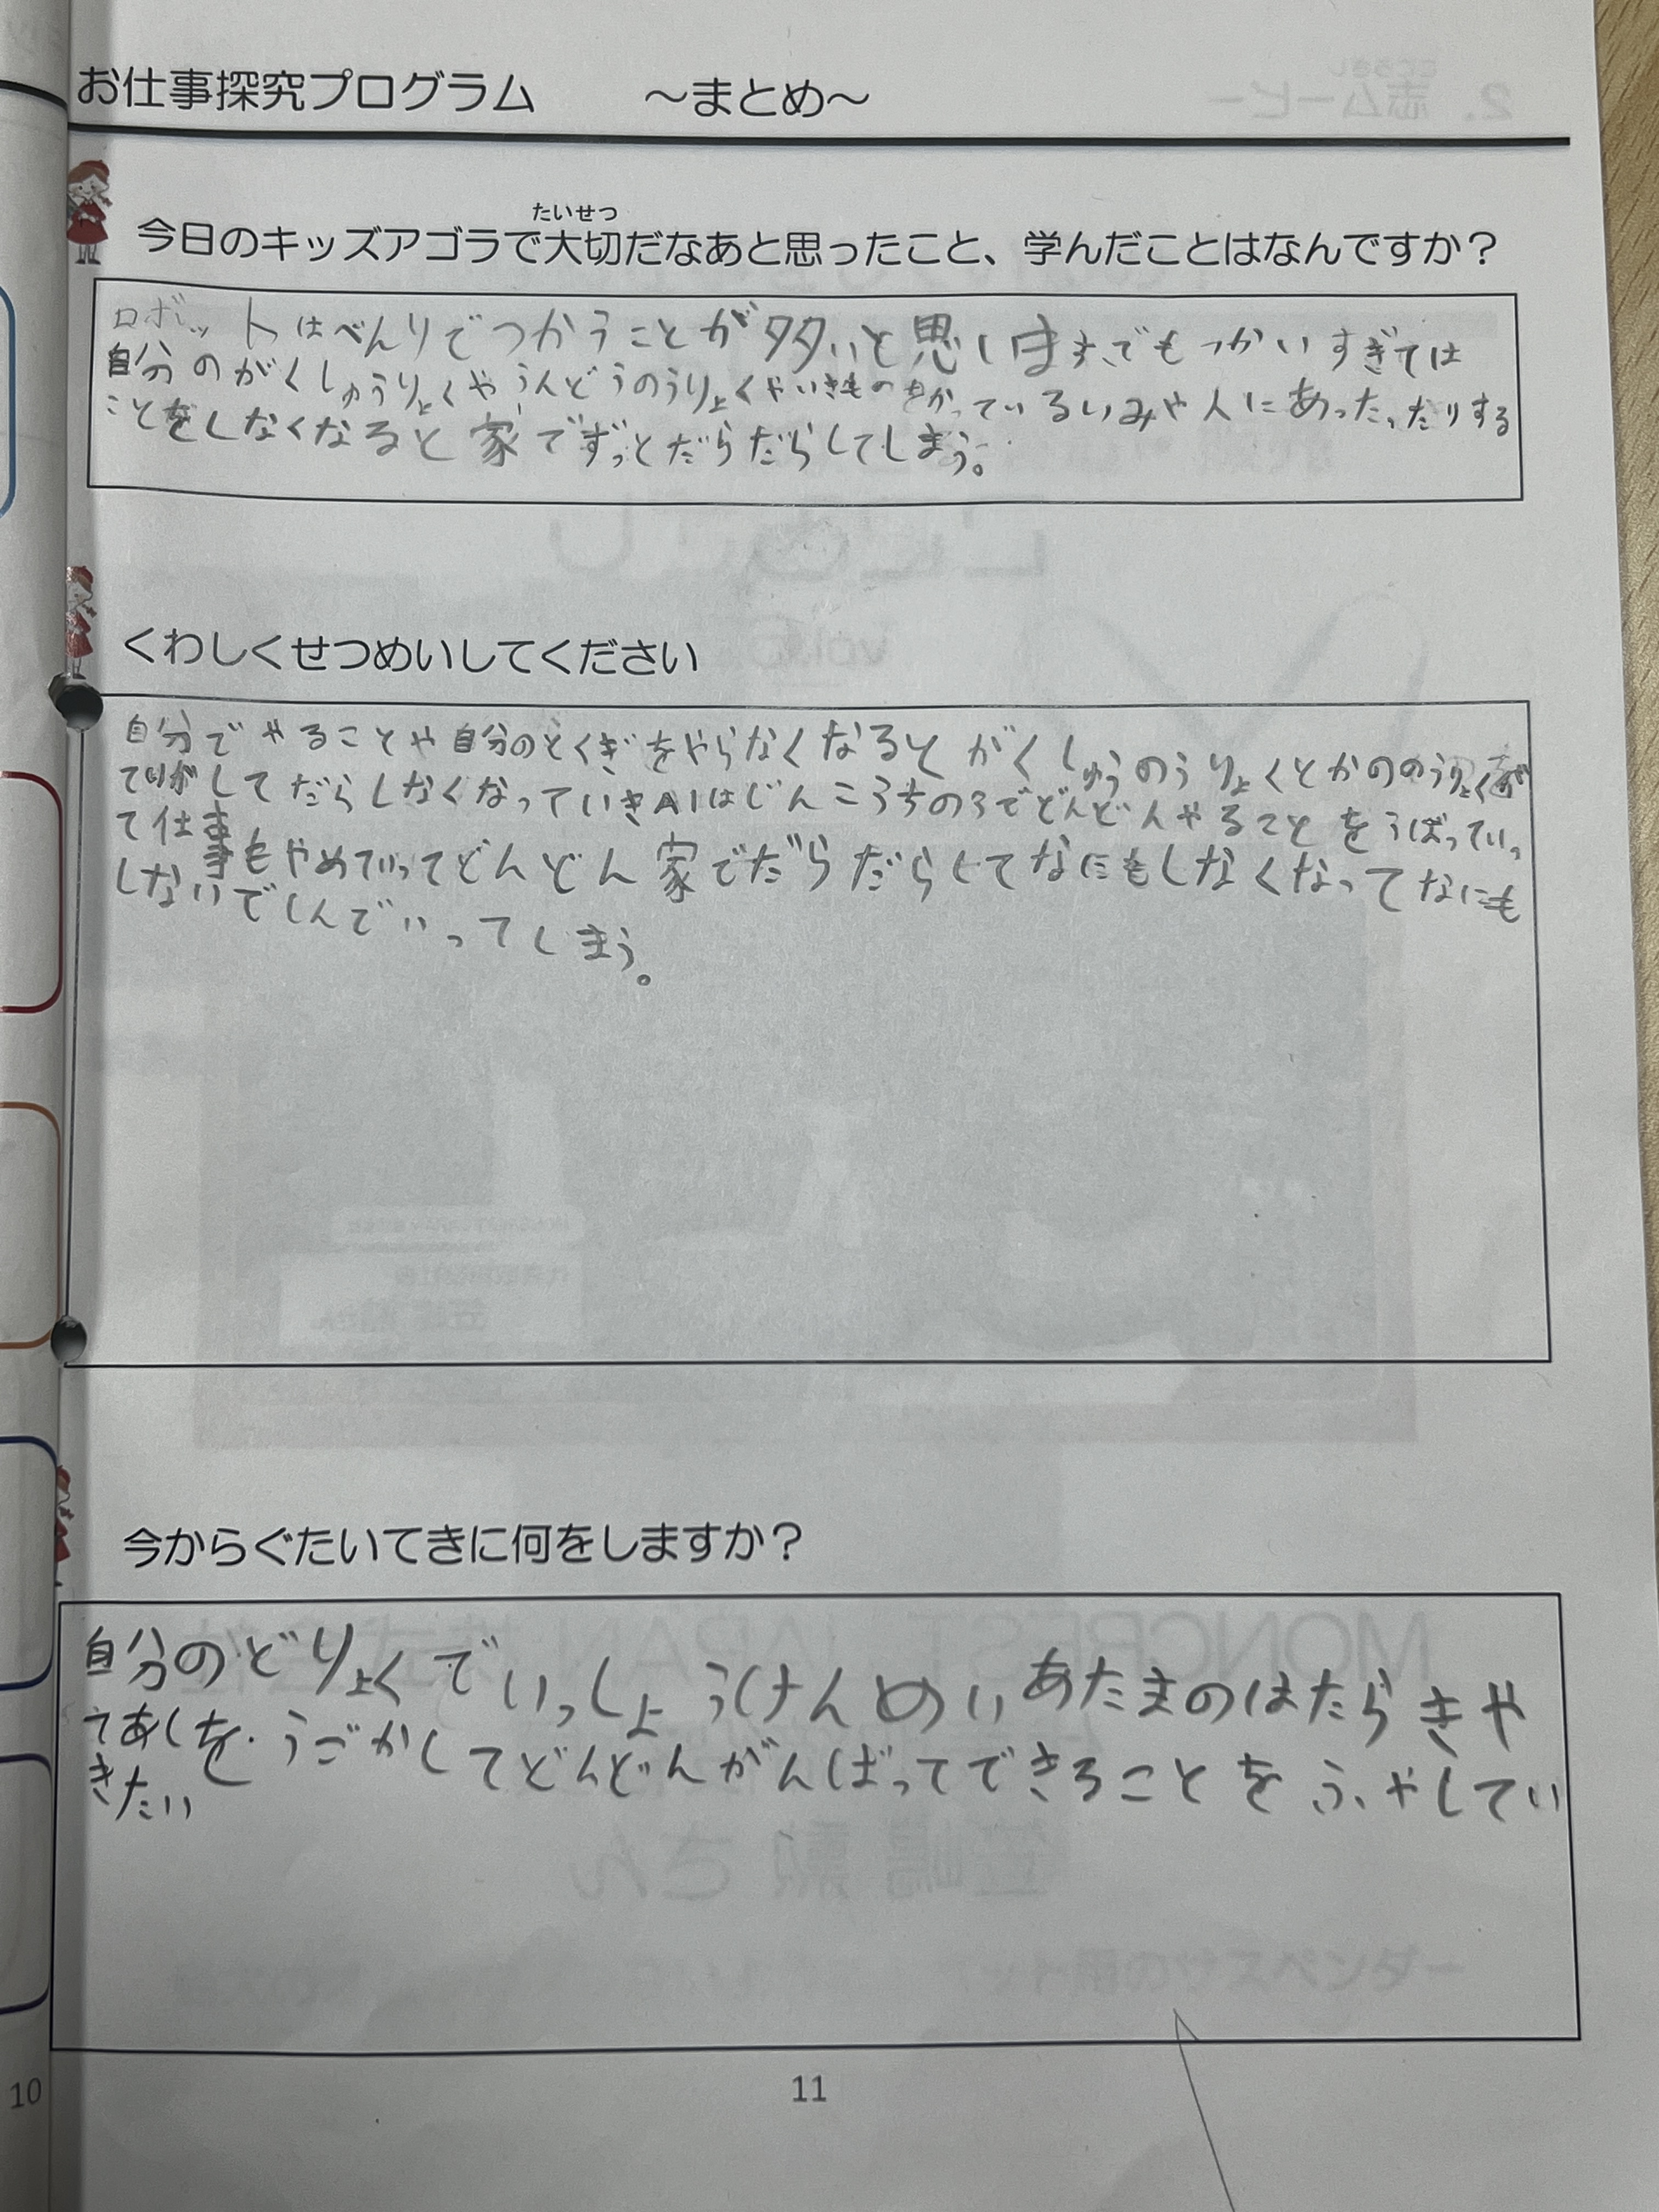 お仕事探究プログラム　～まとめ～
たいせつ
今日のキッズアゴラで大切だなあと思ったこと、学んだことはなんですか？
ロボットはべんりでつかうことが多いと思います。でもつかいすぎては
自分のがくしゅうりょくやうんどうのうりょくやいきものをかっているいみや人にあったりする
ことをしなくなると家でずっとだらだらしてしまう。
くわしくせつめいしてください
自分でやることや自分のとくぎをやらなくなるとがくしゅうのうりょくとかののうりょくが
してだらしなくなっていきAIはじんこうちのうでどんどんやることをうばっていっ
て仕事もやめていってどんどん家でだらだらしてなにもしなくなってなにも
しないでしんでいってしまう。
今からぐたいてきに何をしますか？
自分のどりょくでいっしょうけんめいあたまのはたらきや
てあしをうごかしてどんどんがんばってできることをふやしてい
きたい
10
11